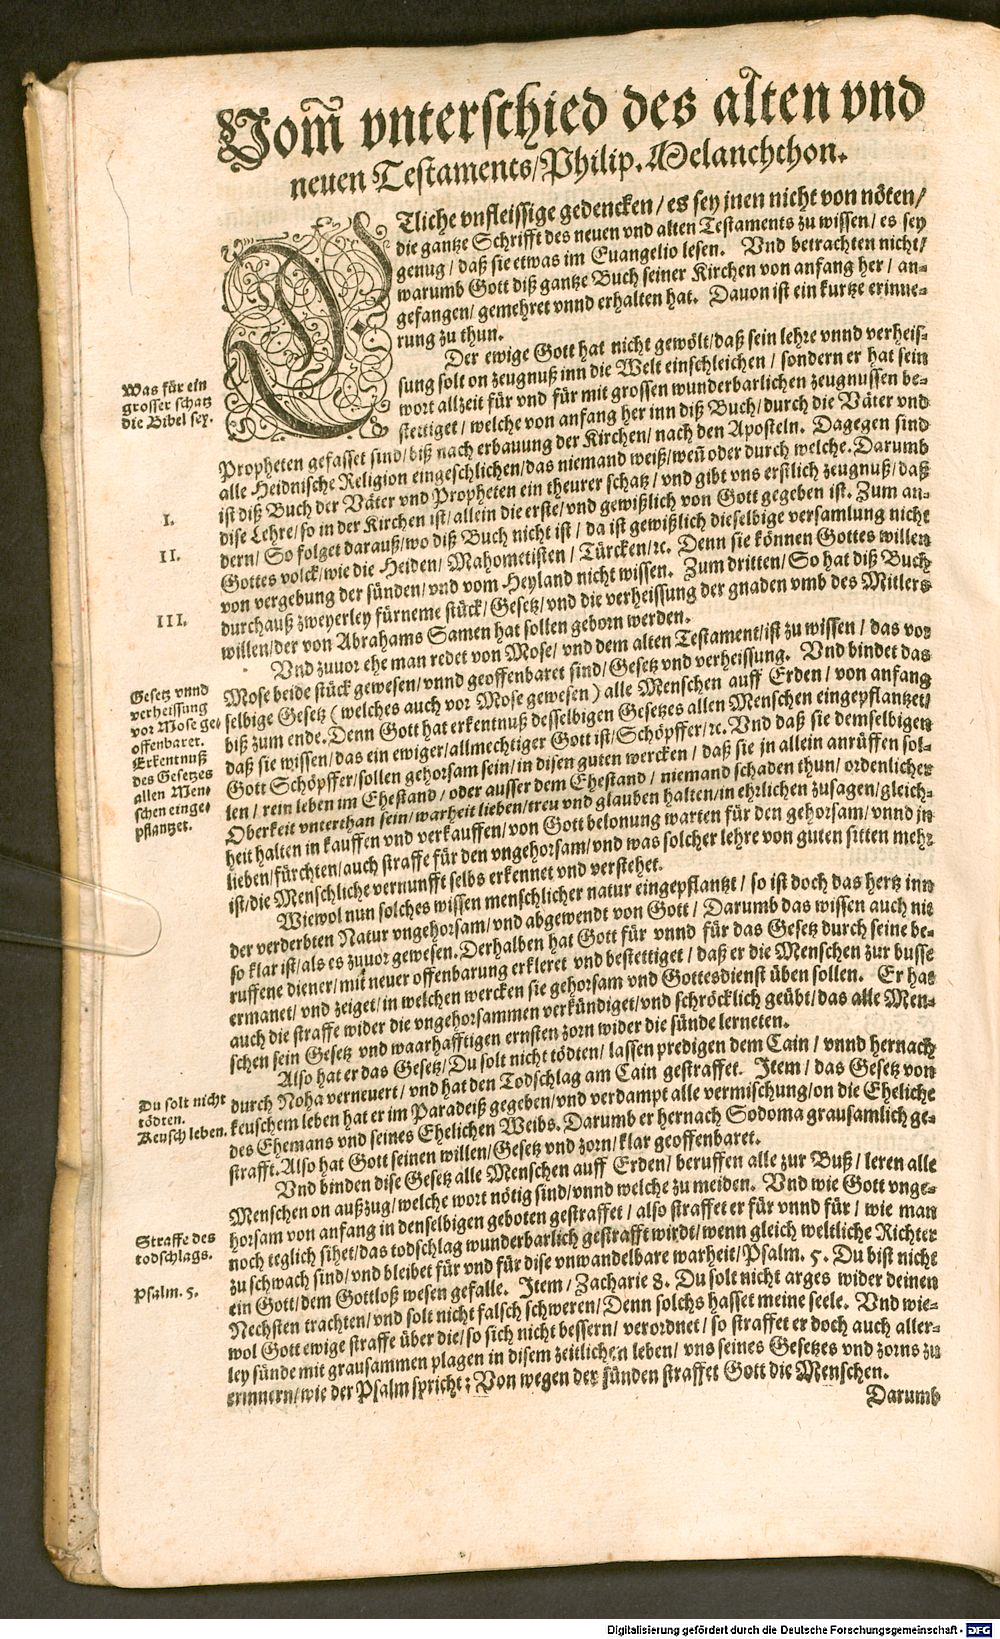 Vom̃ vnterschied des alten vnd
neuen Testaments/Philip. Melanchthon.
ETliche vnfleissige gedencken/ es sey jnen nicht von nöten/
die gantze Schrifft des neuen vnd alten Testaments zu wissen/ es sey
genug/ daß sie etwas im Euangelio lesen. Vnd betrachten nicht/
warumb Gott diß gantze Buch seiner Kirchen von anfang her/ an-
gefangen/ gemehret vnnd erhalten hat. Dauon ist ein kurtze erinne-
rung zu thun.
Der ewige Gott hat nicht gewölt/daß sein lehre vnnd verheis-
sung solt on zeugnuß inn die Welt einschleichen/ sondern er hat sein
wort allzeit für vnd für mit grossen wunderbarlichen zeugnussen be-
stettiget/ welche von anfang her inn diß Buch/durch die Väter vnd
Was für ein
grosser schatz
die Bibel sey.
Propheten gefasset sind/biß nach erbauung der Kirchen/nach den Aposteln. Dagegen sind
alle Heidnische Religion eingeschlichen/das niemand weiß/weñ oder durch welche. Darumb
ist diß Buch der Väter vnd Propheten ein theurer schatz/ vnd gibt vns erstlich zeugnuß/daß
I.
dise Lehre/so in der Kirchen ist/allein die erste/vnd gewißlich von Gott gegeben ist. Zum an-
II.
dern/ So folget darauß/wo diß Buch nicht ist/ da ist gewißlich dieselbige versamlung nicht
Gottes volck/wie die Heiden/ Mahometisten/ Türcken/ꝛc. Denn sie können Gottes willen
von vergebung der sünden/vnd vom Heyland nicht wissen. Zum dritten/ So hat diß Buch
III.
durchauß zweyerley fürneme stück/Gesetz/vnd die verheissung der gnaden vmb des Mitlers
willen/der von Abrahams Samen hat sollen geborn werden.
Vnd zuuor ehe man redet von Mose/ vnd dem alten Testament/ist zu wissen/ das vor
Mose beide stück gewesen/vnnd geoffenbaret sind/Gesetz vnd verheissung. Vnd bindet das
Gesetz vnnd
verheissung
vor Mose ge-
offenbaret.
Erkentnuß
des Gesetzes
allen Men-
schen einge-
pflantzet.
selbige Gesetz (welches auch vor Mose gewesen) alle Menschen auff Erden/ von anfang
biß zum ende. Denn Gott hat erkentnuß desselbigen Gesetzes allen Menschen eingepflantzet/
daß sie wissen/das ein ewiger/allmechtiger Gott ist/Schöpffer/ꝛc. Vnd daß sie demselbigen
Gott Schöpffer/sollen gehorsam sein/in disen guten wercken/ daß sie jn allein anrüffen sol-
len/ rein leben im Ehestand/ oder ausser dem Ehestand/ niemand schaden thun/ ordenlicher
Oberkeit vnterthan sein/warheit lieben/treu vnd glauben halten/in ehrlichen zusagen/gleich-
heit halten in kauffen vnd verkauffen/von Gott belonung warten für den gehorsam/vnnd jn
lieben/fürchten/auch straffe für den vngehorsam/vnd was solcher lehre von guten sitten mehr
ist/die Menschliche vernunfft selbs erkennet vnd verstehet.
Wiewol nun solches wissen menschlicher natur eingepflantzt/ so ist doch das hertz inn
der verderbten Natur vngehorsam/vnd abgewendt von Gott/ Darumb das wissen auch nie
so klar ist/als es zuuor gewesen. Derhalben hat Gott für vnnd für das Gesetz durch seine be-
ruffene diener/mit neuer offenbarung erkleret vnd bestettiget/ daß er die Menschen zur busse
ermanet/ vnd zeiget/in welchen wercken sie gehorsam vnd Gottesdienst üben sollen. Er hat
auch die straffe wider die vngehorsammen verkündiget/vnd schröcklich geübt/das alle Men-
schen sein Gesetz vnd waarhafftigen ernsten zorn wider die sünde lerneten.
Also hat er das Gesetz/Du solt nicht tödten/ lassen predigen dem Cain/ vnnd hernach
Du solt nicht
tödten.
Keusch leben.
durch Noha verneuert/ vnd hat den Todschlag am Cain gestraffet. Item/ das Gesetz von
keuschem leben hat er im Paradeiß gegeben/vnd verdampt alle vermischung/on die Eheliche
des Ehemans vnd seines Ehelichen Weibs. Darumb er hernach Sodoma grausamlich ge-
strafft. Also hat Gott seinen willen/Gesetz vnd zorn/klar geoffenbaret.
Vnd binden dise Gesetz alle Menschen auff Erden/ beruffen alle zur Buß/ leren alle
Menschen on außzug/welche wort nötig sind/vnnd welche zu meiden. Vnd wie Gott vnge-
horsam von anfang in denselbigen geboten gestraffet/ also straffet er für vnnd für/ wie man
Straffe des
todschlags.
noch teglich sihet/das todschlag wunderbarlich gestrafft wirdt/wenn gleich weltliche Richter
zu schwach sind/vnd bleibet für vnd für dise vnwandelbare warheit/Psalm. 5. Du bist nicht
Psalm. 5.
ein Gott/dem Gottloß wesen gefalle. Item/ Zacharie 8. Du solt nicht arges wider deinen
Nechsten trachten/vnd solt nicht falsch schweren/Denn solchs hasset meine seele. Vnd wie-
wol Gott ewige straffe über die/so sich nicht bessern/ verordnet/ so straffet er doch auch aller-
ley sünde mit grausammen plagen in disem zeitlichen leben/ vns seines Gesetzes vnd zorns zu
erinnern/wie der Psalm spricht: Von wegen der sünden straffet Gott die Menschen.
Darumb
Digitalisierung gefördert durch die Deutsche Forschungsgemeinschaft - DFG